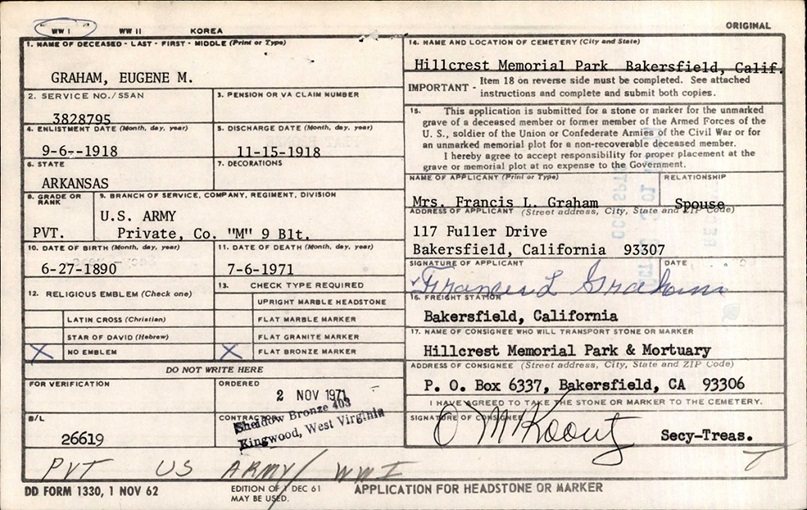 WW I WW II KOREA ORIGINAL
1. NAME OF DECEASED - LAST - FIRST - MIDDLE (Print or Type)
GRAHAM, EUGENE M.
2. SERVICE NO./SSAN
3828795
3. PENSION OR VA CLAIM NUMBER
4. ENLISTMENT DATE (Month, day, year)
9-6--1918
5. DISCHARGE DATE (Month, day, year)
11-15-1918
6. STATE
ARKANSAS
7. DECORATIONS
8. GRADE OR RANK
PVT.
9. BRANCH OF SERVICE, COMPANY, REGIMENT, DIVISION
U.S. ARMY
Private, Co. "M" 9 Blt.
10. DATE OF BIRTH (Month, day, year)
6-27-1890
11. DATE OF DEATH (Month, day, year)
7-6-1971
12. RELIGIOUS EMBLEM (Check one)
LATIN CROSS (Christian)
STAR OF DAVID (Hebrew)
X NO EMBLEM
13. CHECK TYPE REQUIRED
UPRIGHT MARBLE HEADSTONE
FLAT MARBLE MARKER
FLAT GRANITE MARKER
X FLAT BRONZE MARKER
DO NOT WRITE HERE
FOR VERIFICATION
ORDERED
2 NOV 1971
B/L
26619
CONTRACTOR
Sheidow Bronze 403
Kingwood, West Virginia
14. NAME AND LOCATION OF CEMETERY (City and State)
Hillcrest Memorial Park Bakersfield, Calif.
IMPORTANT - Item 18 on reverse side must be completed. See attached
instructions and complete and submit both copies.
15. This application is submitted for a stone or marker for the unmarked
grave of a deceased member or former member of the Armed Forces of the
U. S., soldier of the Union or Confederate Armies of the Civil War or for
an unmarked memorial plot for a non-recoverable deceased member.
I hereby agree to accept responsibility for proper placement at the
grave or memorial plot at no expense to the Government.
NAME OF APPLICANT (Print or Type)
Mrs. Francis L. Graham
RELATIONSHIP
Spouse
ADDRESS OF APPLICANT (Street address, City, State and ZIP Code)
117 Fuller Drive
Bakersfield, California 93307
SIGNATURE OF APPLICANT
Frances L Graham
DATE
16. FREIGHT STATION
Bakersfield, California
17. NAME OF CONSIGNEE WHO WILL TRANSPORT STONE OR MARKER
Hillcrest Memorial Park & Mortuary
ADDRESS OF CONSIGNEE (Street address, City, State and ZIP Code)
P. O. Box 6337, Bakersfield, CA 93306
I HAVE AGREED TO TAKE THE STONE OR MARKER TO THE CEMETERY.
SIGNATURE OF CONSIGNEE
Secy-Treas.
PVT US ARMY WWI
DD FORM 1330, 1 NOV 62
EDITION OF 1 DEC 61
MAY BE USED.
APPLICATION FOR HEADSTONE OR MARKER